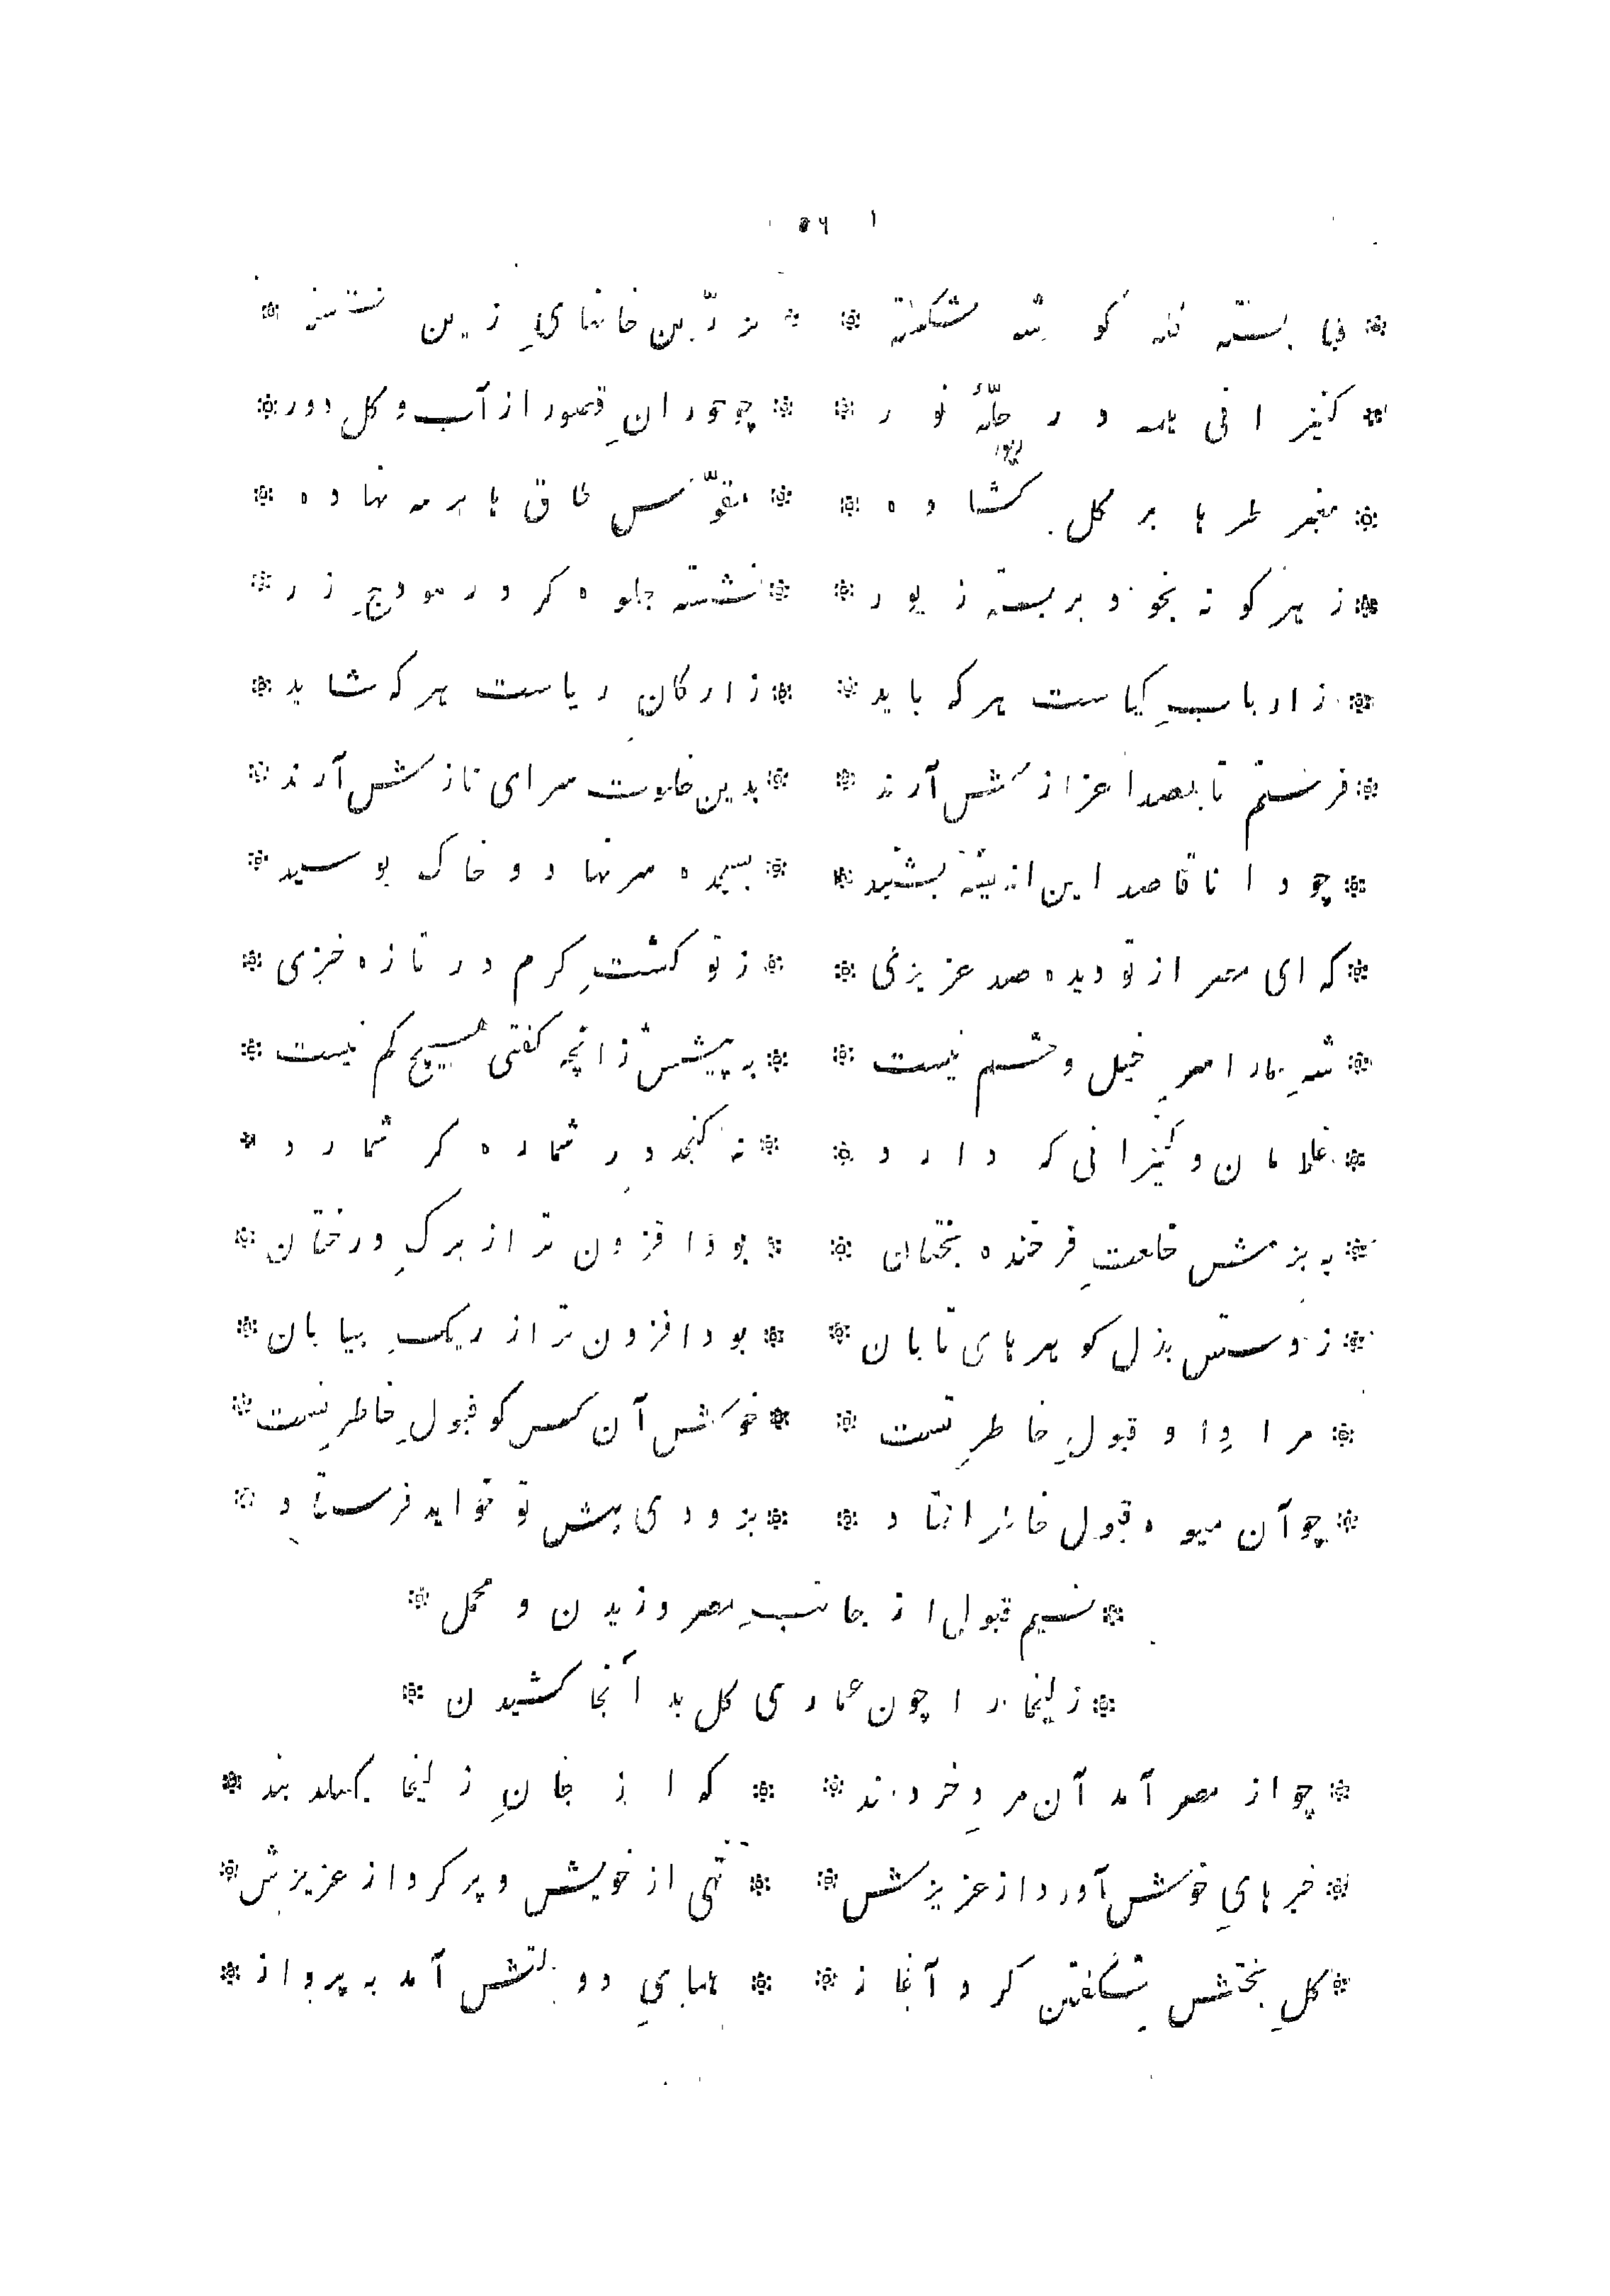 ۵۶
* قبا بسته کله کو شه شکسته * * بز رّین خانهای زین نشسته *
* کنیز انی همه در حلّهٔ نور * * چو حوران قصور از آب و کل دور *
* معنبر طر ها بر کل کشاده * * مقوّس طاق ها بر مه نهاده *
* ز هر کو نه بخود بر بسته زیور * * نشسته جلوه کر در هودج زر *
* ز ارباب کیاست هر که باید * * ز ارکان ریاست هر که شاید *
* فرستم تا بصد اعزازش آرند * * بدین خلوت سرای نازش آرند *
* چو دانا قاصد این اندیشه بشنید * * بسجده سر نهاد و خاک بوسید *
* که ای مصر از تو دیده صد عزیزی * * ز تو کشت کرم در تازه خیزی *
* شه مارا سر خیل و حشم نیست * * به پیشش زانچه کفتی هیچ کم نیست *
* غلامان و کنیزانی که دارد * * نه کنجد در شماره کر شمارد *
* به بزمش خلعت فرخنده بختان * * بود افزون تر از برک درختان *
* ز دستش بذل کوهرهای تابان * * بود افزون تر از ریک بیابان *
* مراد او قبول خاطر تست * * خوش آن کس کو قبول خاطر تست *
* چو آن میوه قبول خاطر افتاد * * بزودی پیش تو خواهد فرستاد *
* نسیم قبول از جانب مصر وزیدن و محمل *
* زلیخا را چون عماری کل بد آنجا کشیدن *
* چو از مصر آمد آن مرد خردمند * * که از جان زلیخا بکسلد بند *
* خبرهای خوش آورد از عزیزش * * تهی از خویش و پر کرد از عزیزش *
* کل بختش شکفتن کرد آغاز * * همای دولتش آمد به پرواز *